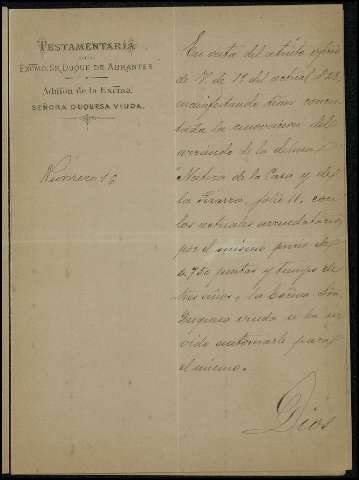 TESTAMENTARÍA
DEL
EXCMO. SR. DUQUE DE ABRANTES
Admon de la Excma.
SEÑORA DUQUESA VIUDA.
Número 13
En vista del atento oficio
de V. de 17 del actual nº 28
manifestando tiene concer
tada la renovacion del
arriendo de la dehesa
Natera de la Casa y de
la Pizarra, folio 11, con
los actuales arrendatarios
por el mismo precio de
6.750 pesetas y tiempo de
tres años, la Excma. Sra.
Duquesa viuda se ha ser
vido autorizarle para
el mismo.
Dios